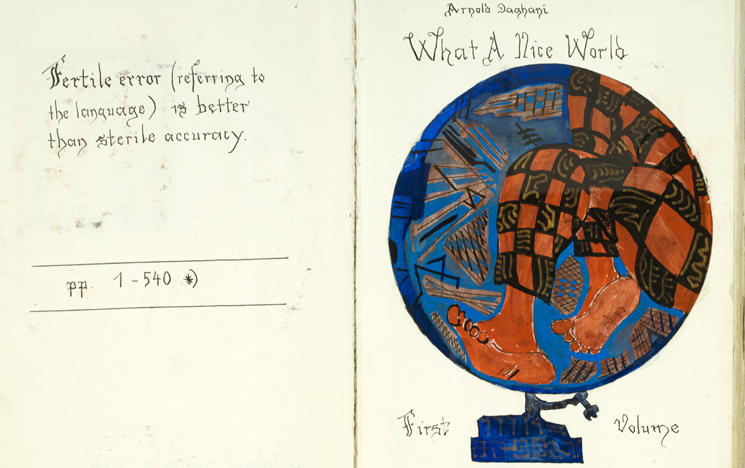 Fertile error (referring to
the language) is better
than sterile accuracy.
pp. 1-540 *)
Arnold Daghani
What A Nice World
First Volume